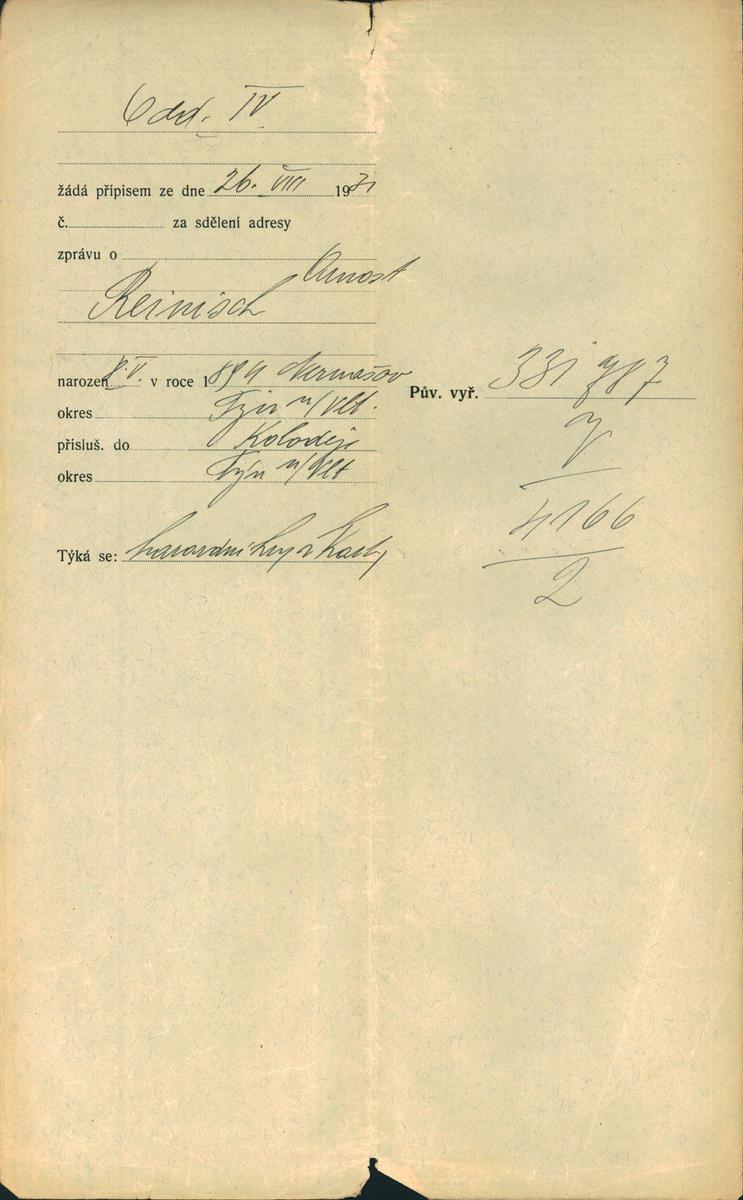 Odd. IV
žádá přípisem ze dne 26. VIII 1931
č. za sdělení adresy
zprávu o
Arnošt
Reinisch
narozen V. v roce 1894 Neznašov
okres Týn n/Vlt.
přísluš. do Koloděje
okres Týn n/Vlt
Týká se: hasardní hry v karty
Pův. vyř. 331 787
7
4166
2